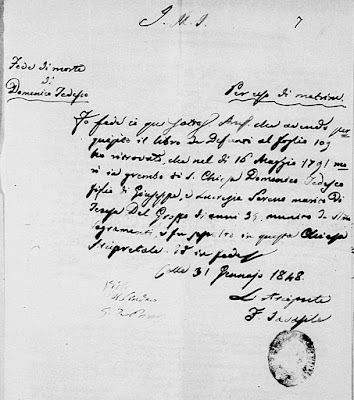 J. M. J.
7
Fede di morte
di
Domenico Tedesco
Per uso di matrim.
Io fede io qui sotto Arcip. che avendo per
quisito il libro de Defunti al foglio 109
ho ritrovato, che nel dì 16 Maggio 1791 mo
rì in grembo di S. Chiesa Domenico Tedesco
figlio di Giuseppe, e Lucrezia Sareno marito di
Teresa Del Grosso di anni 39, munito de
sagramenti, e fu sepolto in questa Chiesa
Arcipretale. ed in fede
31 Gennajo 1848.
L'Arciprete
F.